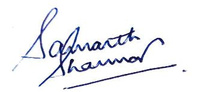 Samarth
Sharma